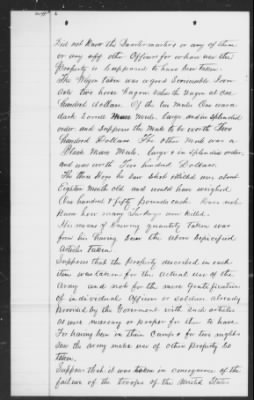 Did not Know the Quartermasters or any of them
or any off other Officer for whose use the
Property is supposed to have been taken.
The Wagon taken was a good Serviceable Iron
Axle two horse Wagon values the Wagon at One
Hundred dollars. Of the two Mules One was a
dark Sorrell Mare Mule, large and in Splendid
order. and Supposes the Mule to be worth Two
hundred Dollars. The Other Mule was a
Black Mare Mule, large & in Splendid order,
and was worth Two hundred Dollars.
The three Hogs he saw Shot & Killed were about
Eighteen Months old and would have weighed
One hundred & fifty pounds each. Does not
Know how many Turkeys were Killed.
His means of Knowing quantity Taken was
from his having Seen the above Specified
Articles Taken.
Supposes that the property described in each
item was taken for the actual use of the
Army and not for the mere Gratification
of individual Officers or Soldiers already
provided by the Government with Such articles
as were necessary or proper for them to have
For having been in their Camps for two nights
Saw the Army make use of other Property so
taken.
Supposes that it was taken in consequence of the
failure of the troops of the United States